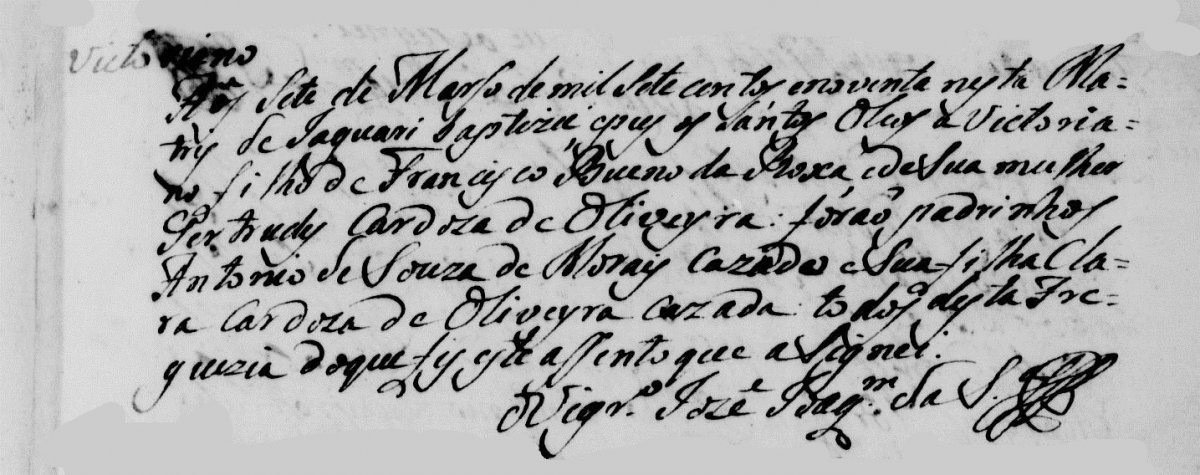 Victoriano
Aos Sete de Marso de mil Sete centos enoventa nesta Ma=
tris de Jaguari baptizei epus os Santos Oleos a Victoria=
no filho de Francisco Bueno da Roxa ede Sua mulher
Gertrudes Cardoza de Oliveyra: forão padrinhos
Antonio de Souza de Morais Cazado e Sua filha Cla=
ra Cardoza de Oliveyra cazada todos desta Fre=
guezia doque fis este assento que aSignei.
O Vigr.º Jozé Joaq.m da S.